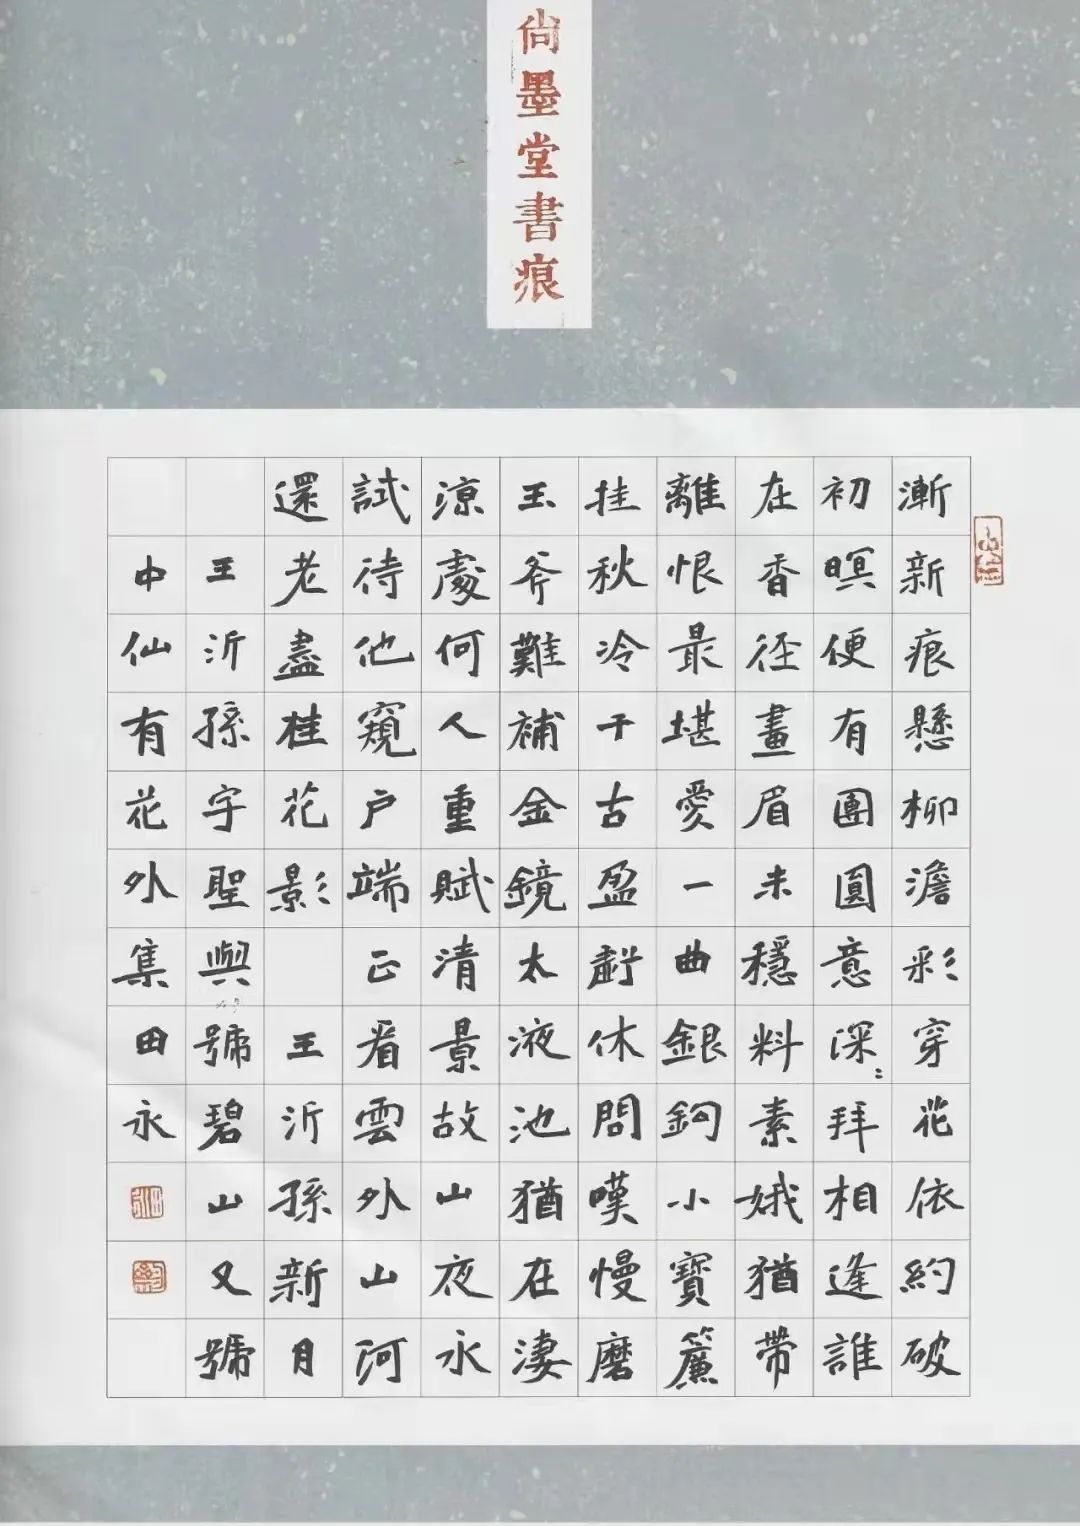 尚墨堂書痕
漸新痕懸柳澹彩穿花依約破
初暝便有團圓意深〻拜相逢誰
在香徑畫眉未穩料素娥猶帶
離恨最堪愛一曲銀鉤小寶簾
挂秋冷千古盈虧休問嘆慢磨
玉斧難補金鏡太液池猶在淒
涼處何人重賦清景故山夜永
試待他窺户端正看雲外山河
還老盡桂花影 王沂孫新月
王沂孫字聖與號碧山又號
中仙有花外集田永